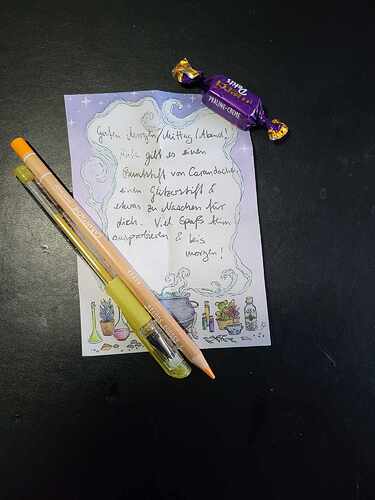 Guten Morgen/Mittag/Abend!
Heute gibt es einen
Buntstift von Carandache
einen Glitzerstift &
etwas zu Naschen für
dich. Viel Spaß beim
ausprobieren & bis
morgen!
PERLING-CREME